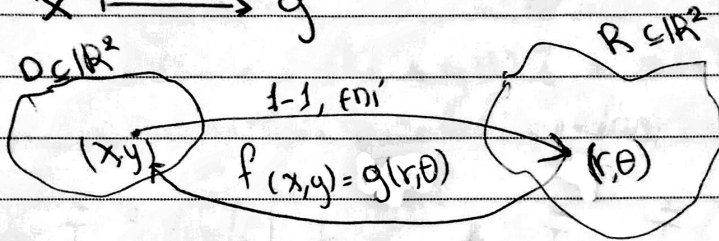 x ⟼ y
D⊆ℝ²
R⊆ℝ²
1-1, επί
(x,y)
f(x,y)=g(r,θ)
(r,θ)